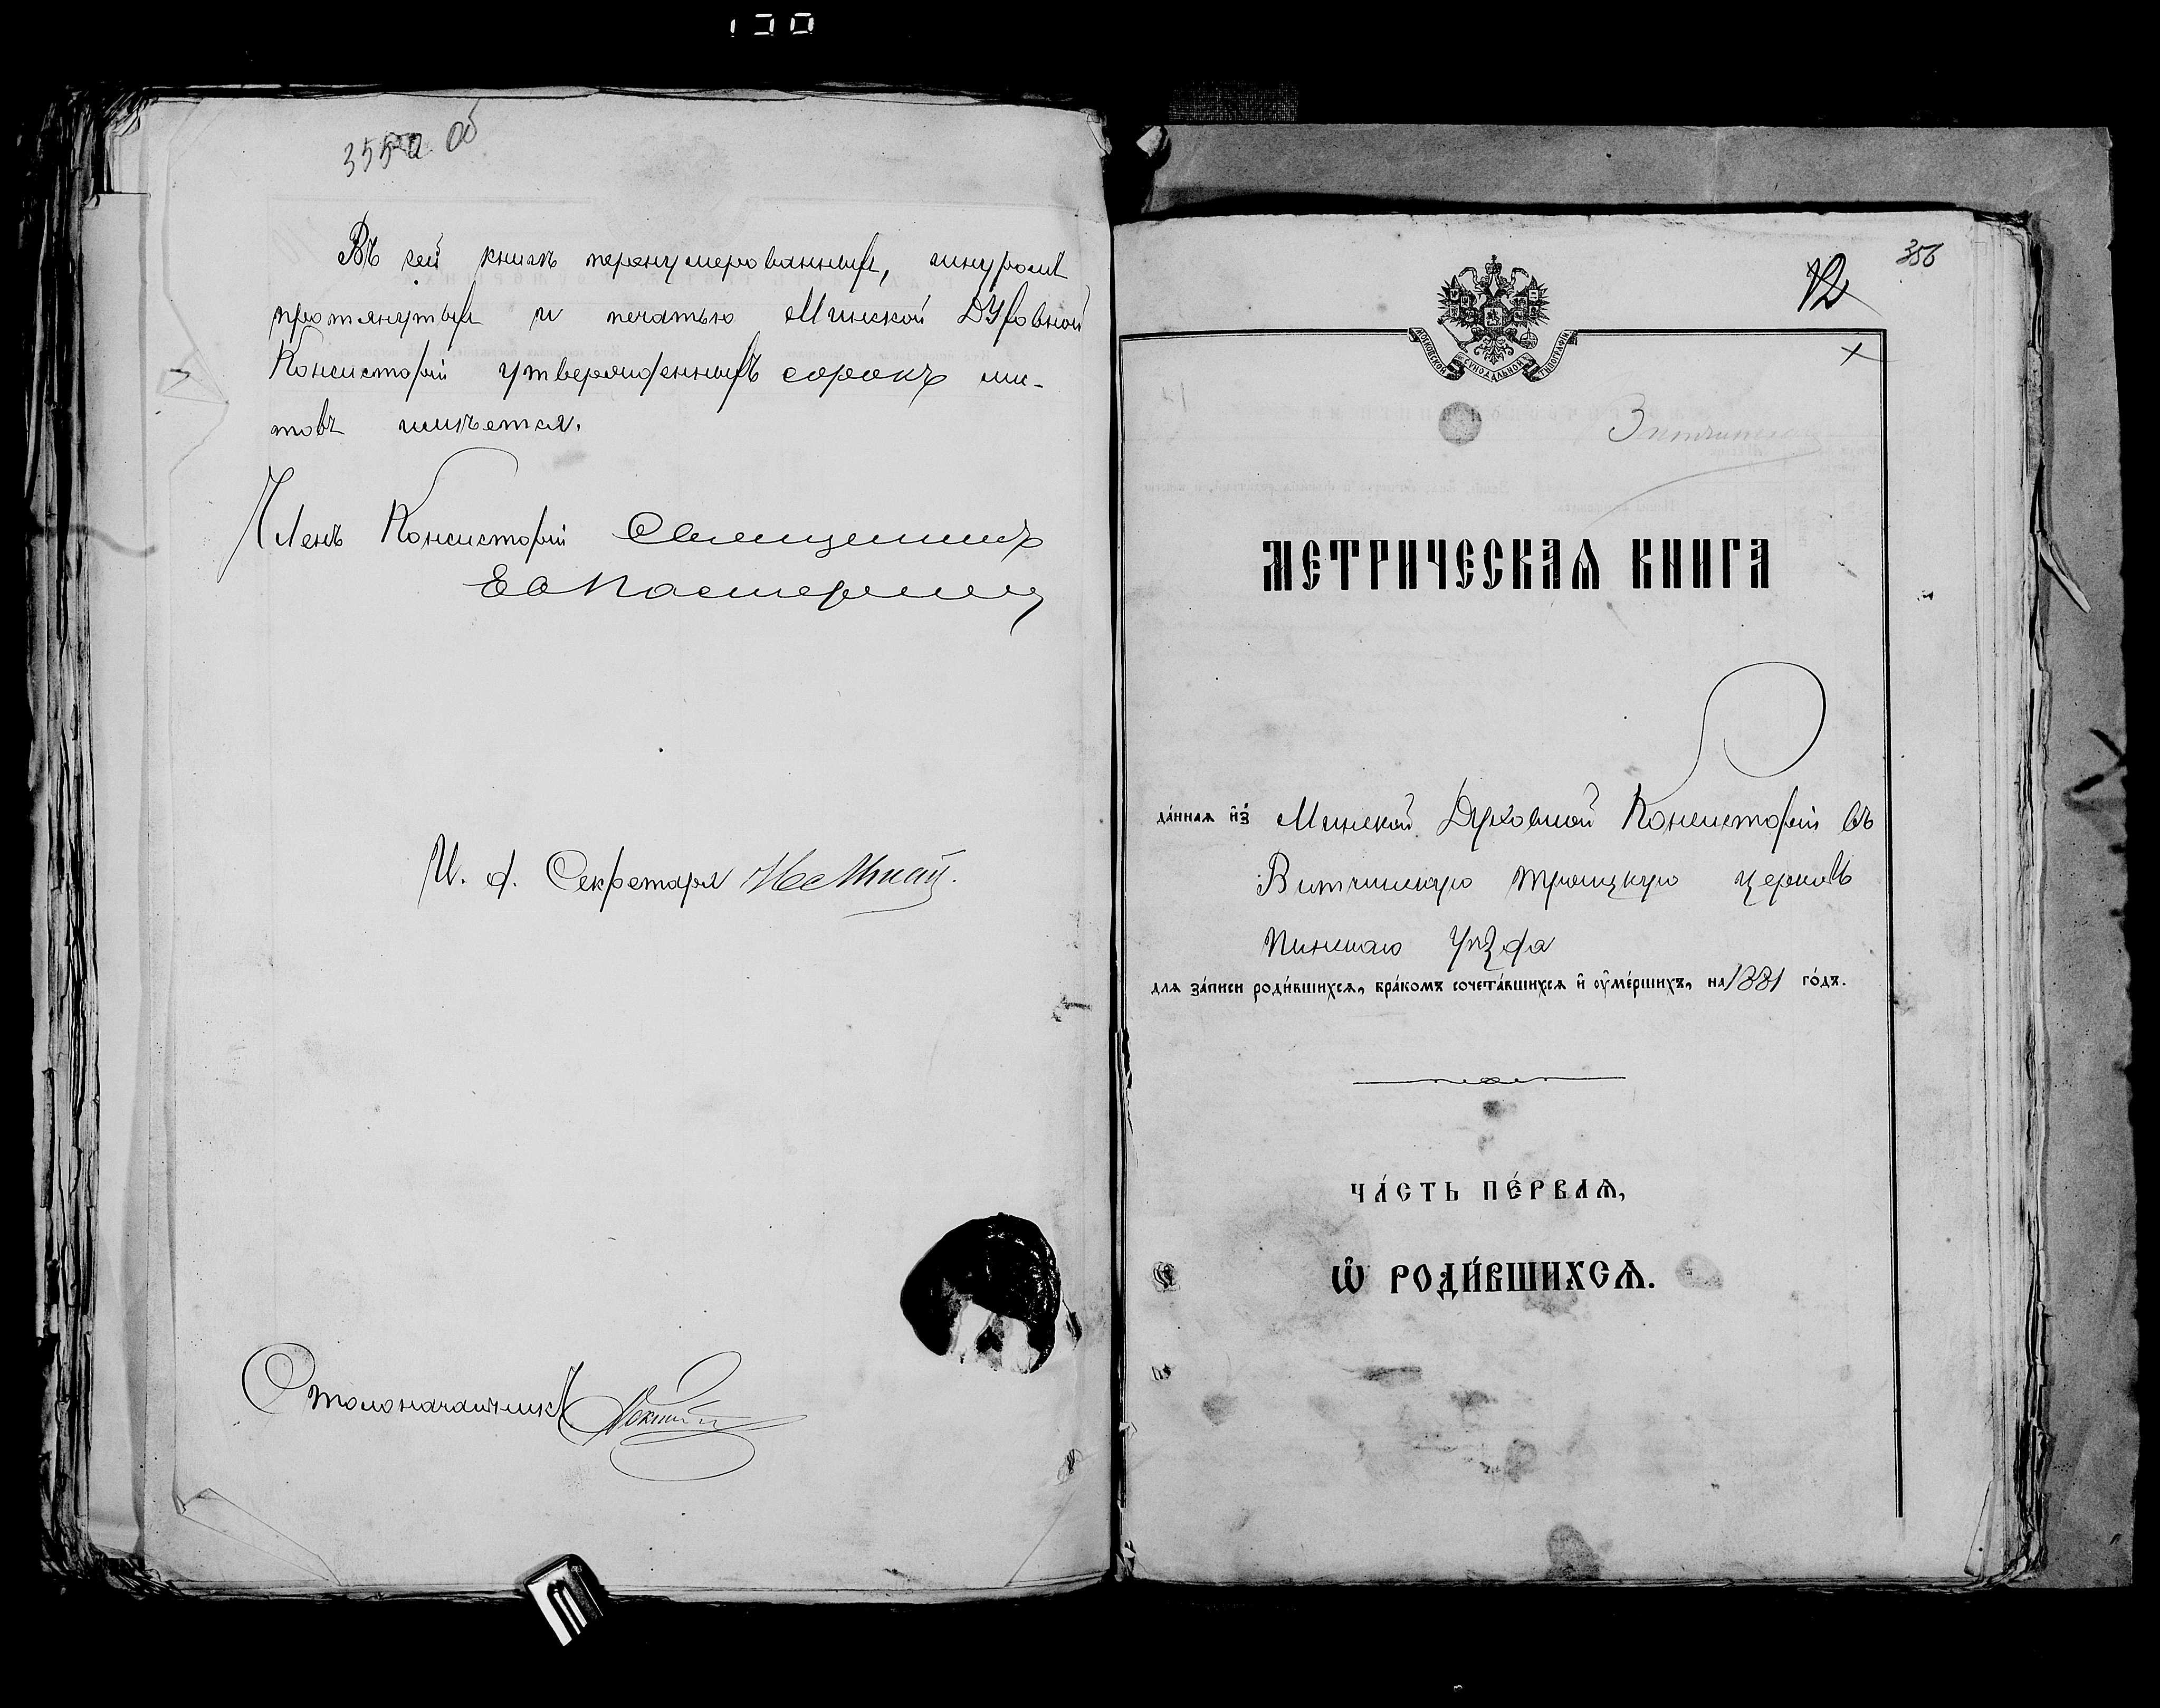 130
355а об
Въ сей книгѣ перенумерованныхъ, шнуромъ
протянутыхъ и печатью Минской Духовной
Консисторіи утвержденныхъ сорокъ лис-
товъ имѣется.
Членъ Консисторіи Священникъ
И. д. Секретаря
Столоначальникъ
356
12
МОСКОВСКОЙ СѴНОДАЛЬНОЙ ТИПОГРАФІИ
МЕТРИЧЕСКАѦ КНИГА
да́ннаѧ и҆з̾ Минской Духовной Консисторіи въ
Витчинскую Троицкую церковь
Пинскаго уѣзда
длѧ за́писи роди́вшихсѧ, бра́комъ сочета́вшихсѧ и҆ ᲂу҆ме́ршихъ, на 1881 го́дъ.
ЧА́СТЬ ПЕ́РВАѦ,
Ѽ РОДИ́ВШИХСѦ.